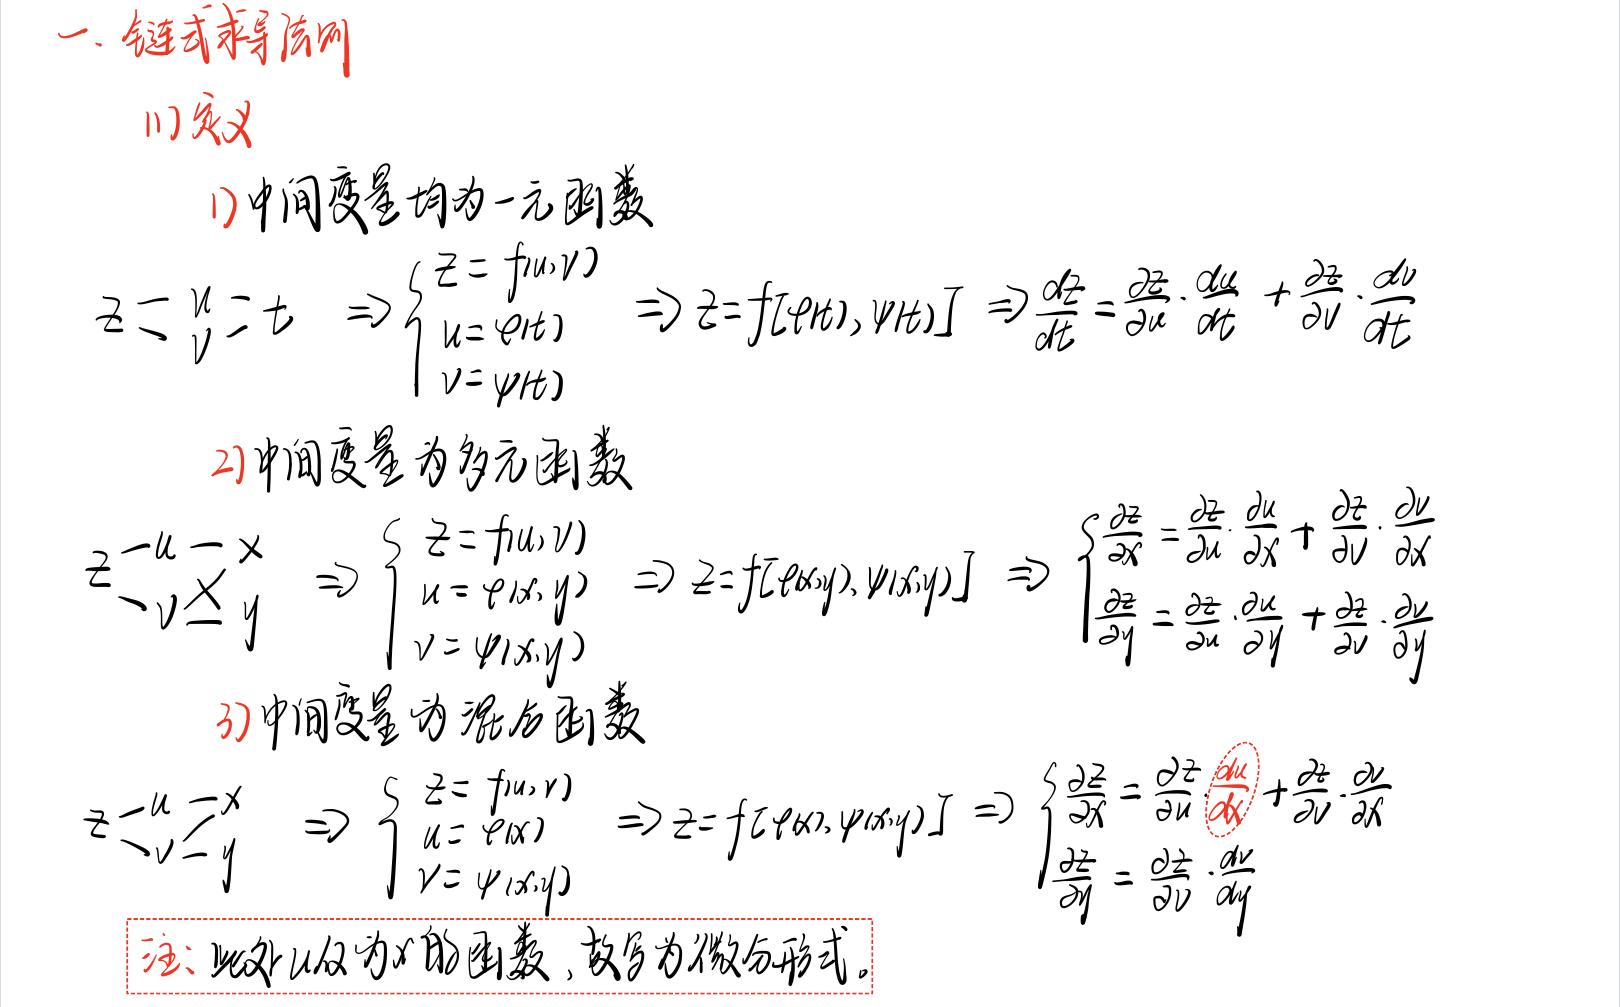 一. 链式求导法则
(1) 定义
1) 中间变量均为一元函数
z - u - t, v ⇒ { z = f(u,v) u = φ(t) v = ψ(t) ⇒ z = f[φ(t), ψ(t)] ⇒ dz/dt = ∂z/∂u · du/dt + ∂z/∂v · dv/dt
2) 中间变量为多元函数
z u x v y ⇒ { z = f(u,v) u = φ(x,y) v = ψ(x,y) ⇒ z = f[φ(x,y), ψ(x,y)] ⇒ { ∂z/∂x = ∂z/∂u · ∂u/∂x + ∂z/∂v · ∂v/∂x
∂z/∂y = ∂z/∂u · ∂u/∂y + ∂z/∂v · ∂v/∂y
3) 中间变量为混合函数
z u x v y ⇒ { z = f(u,v) u = φ(x) v = ψ(x,y) ⇒ z = f[φ(x), ψ(x,y)] ⇒ { ∂z/∂x = ∂z/∂u · du/dx + ∂z/∂v · ∂v/∂x
∂z/∂y = ∂z/∂v · dv/dy
注: 此处u仅为x的函数, 故写为微分形式。